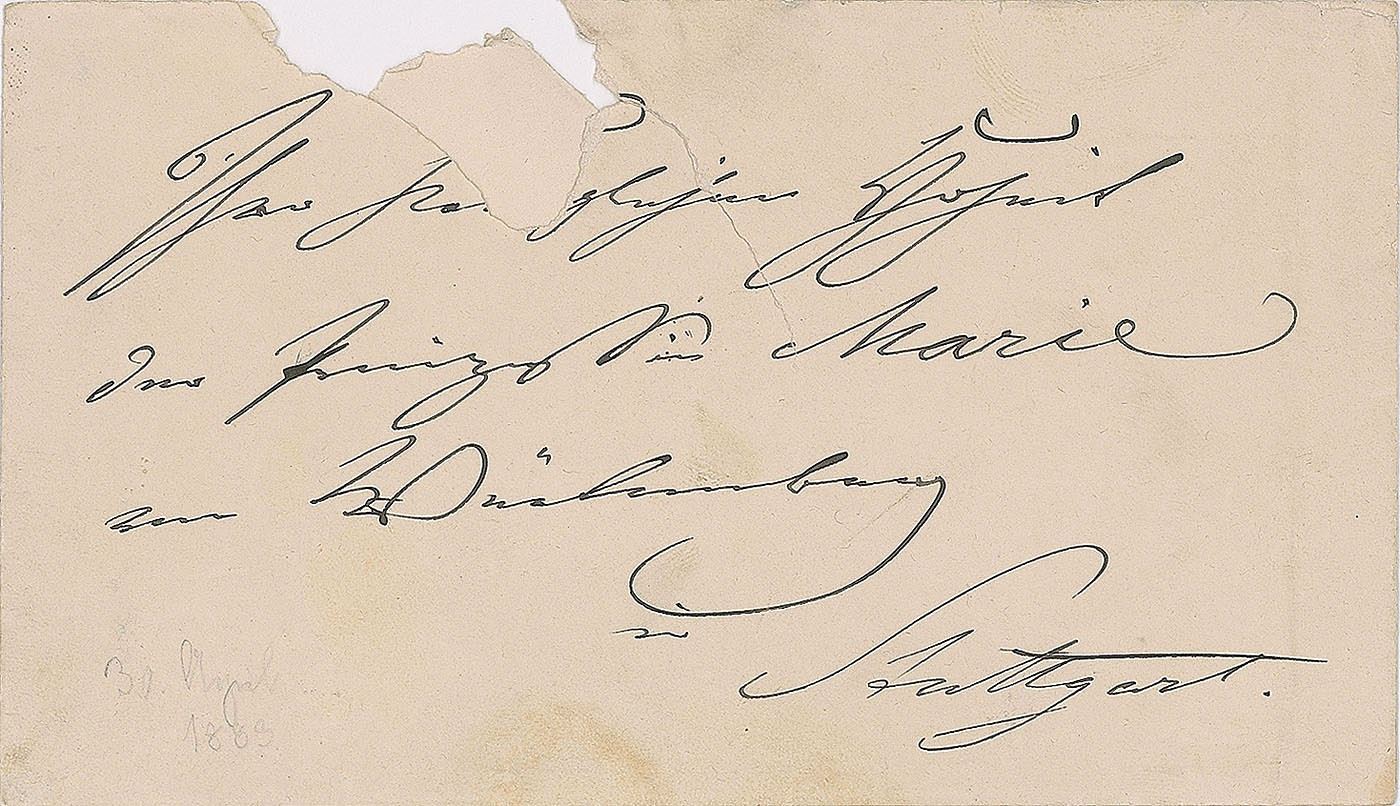 Ihrer glichen Hoheit
der Prinzessin Marie
von Württemberg
in Stuttgart.
30. April